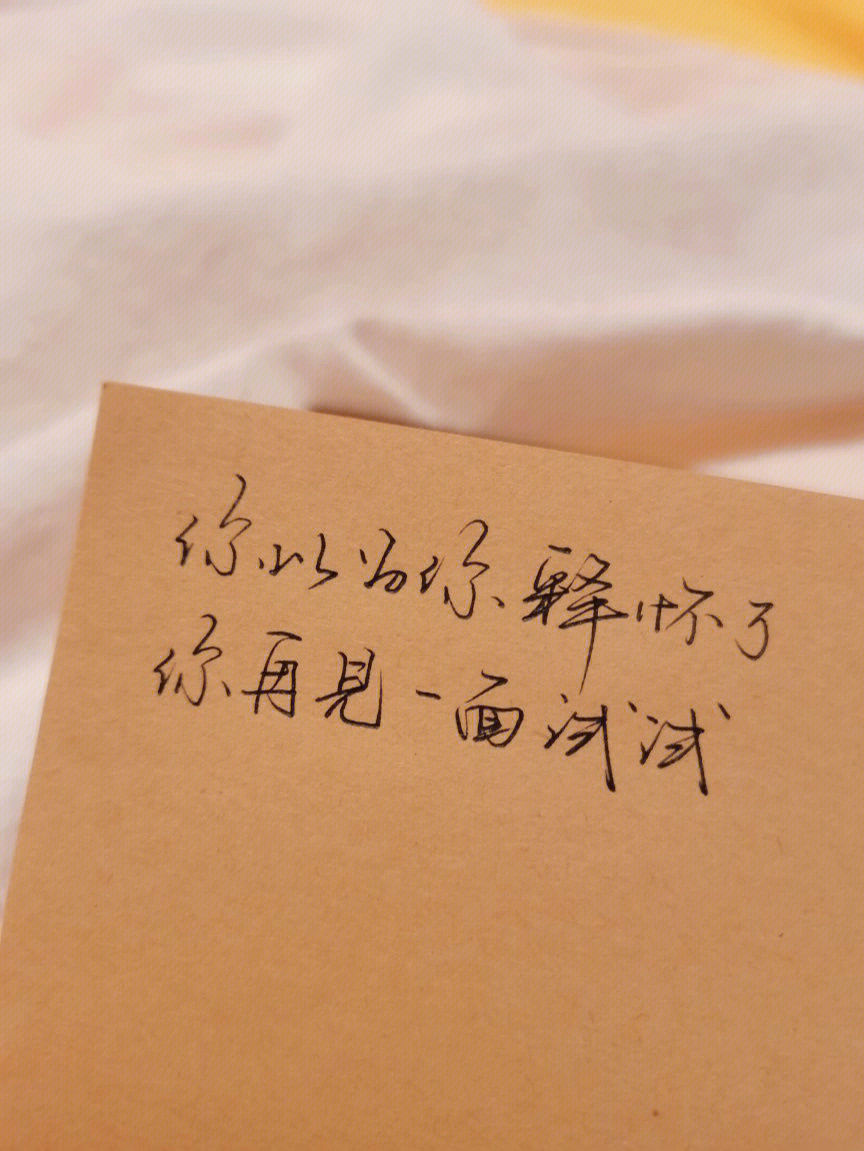 你以为你释怀了
你再见一面试试